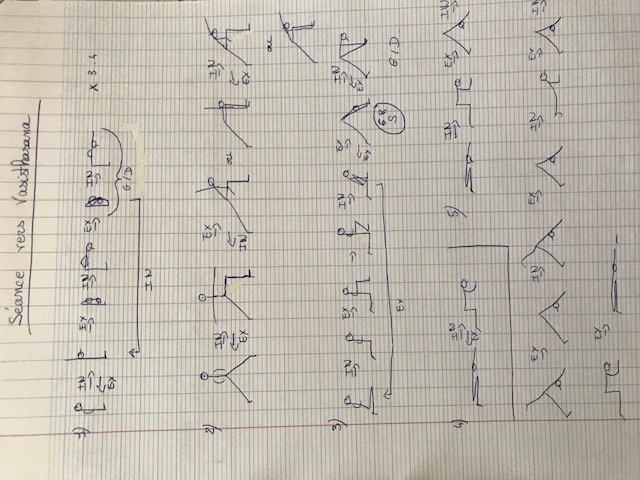 Séance vers Vasisthasana
1) IN EX EX IN EX IN G/D x 3-4
IN
2) IN EX EX IN ou IN EX ou
3) IN EX IN EX EX IN EX G/D
6R
5
EX
4) IN EX 5) IN EX IN
EX IN EX IN EX IN
EX